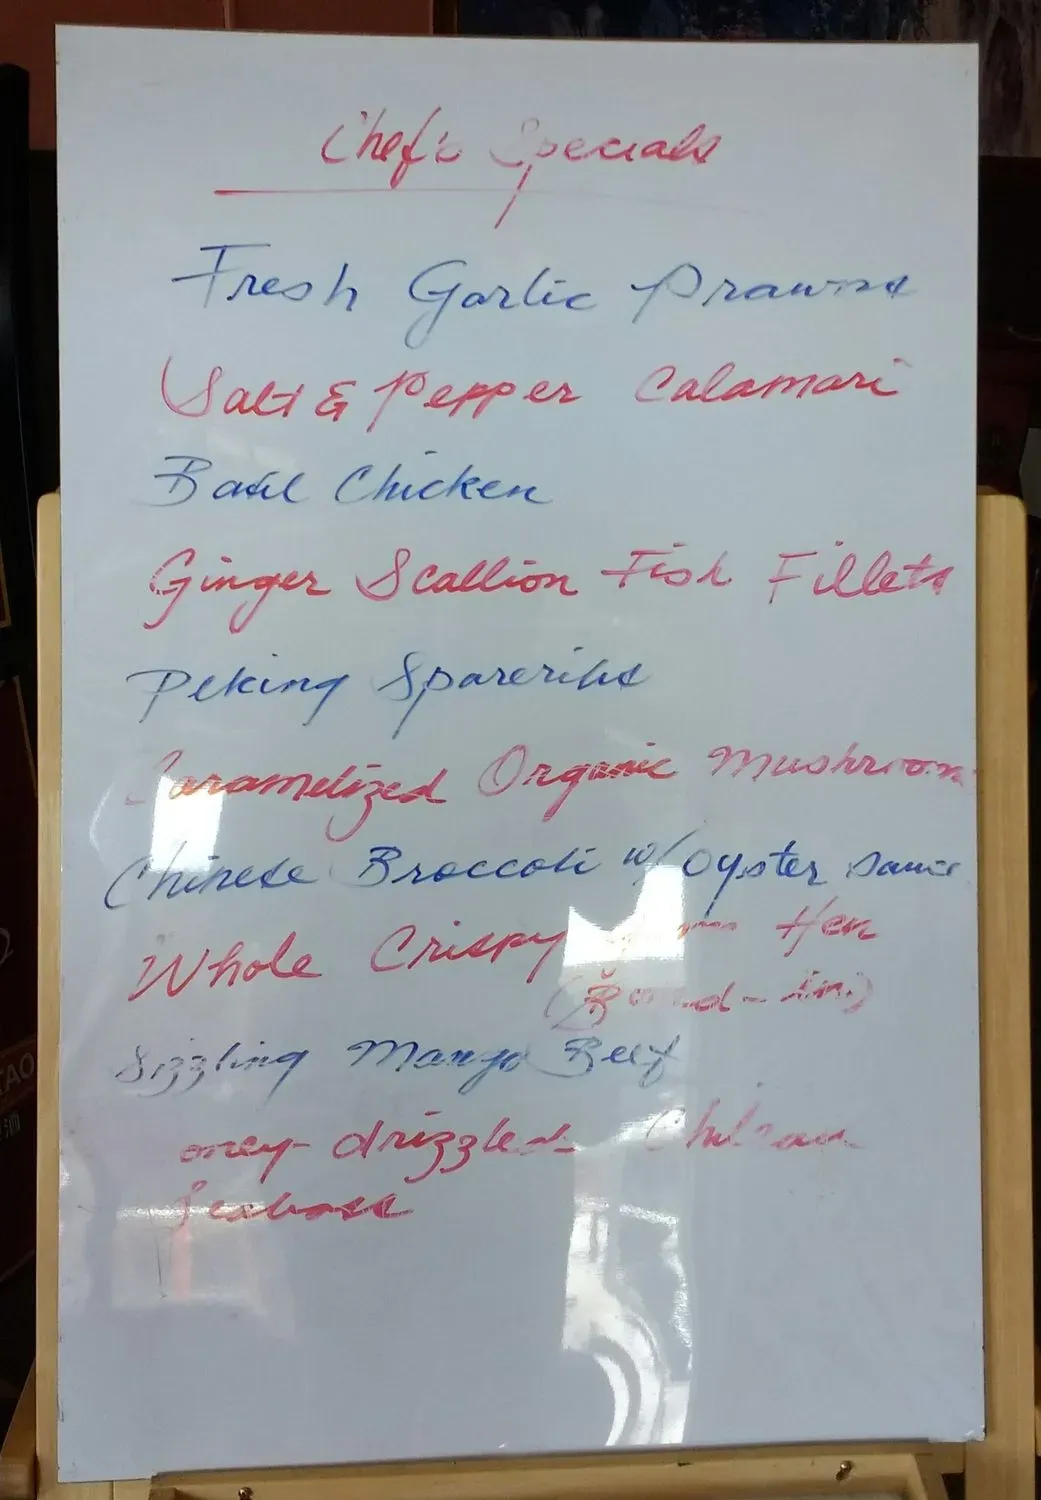 Chef's Specials
Fresh Garlic Prawns
Salt & Pepper Calamari
Basil Chicken
Ginger Scallion Fish Fillets
Peking Spareribs
Caramelized Organic Mushroom
Chinese Broccoli w/ Oyster Sauce
Whole Crispy Hen
Sizzling Mango Beef
oney-drizzled Chilean
Seabass
TAO